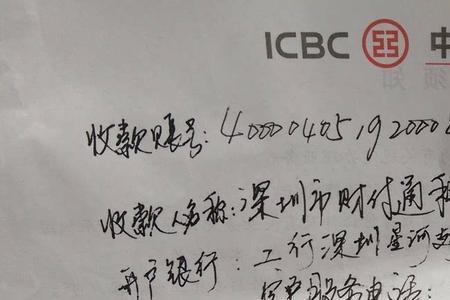 ICBC 中
须知
收款账号:4000040519200006
收款人名称:深圳市财付通科
开户银行:工行深圳星河支
客户服务电话: